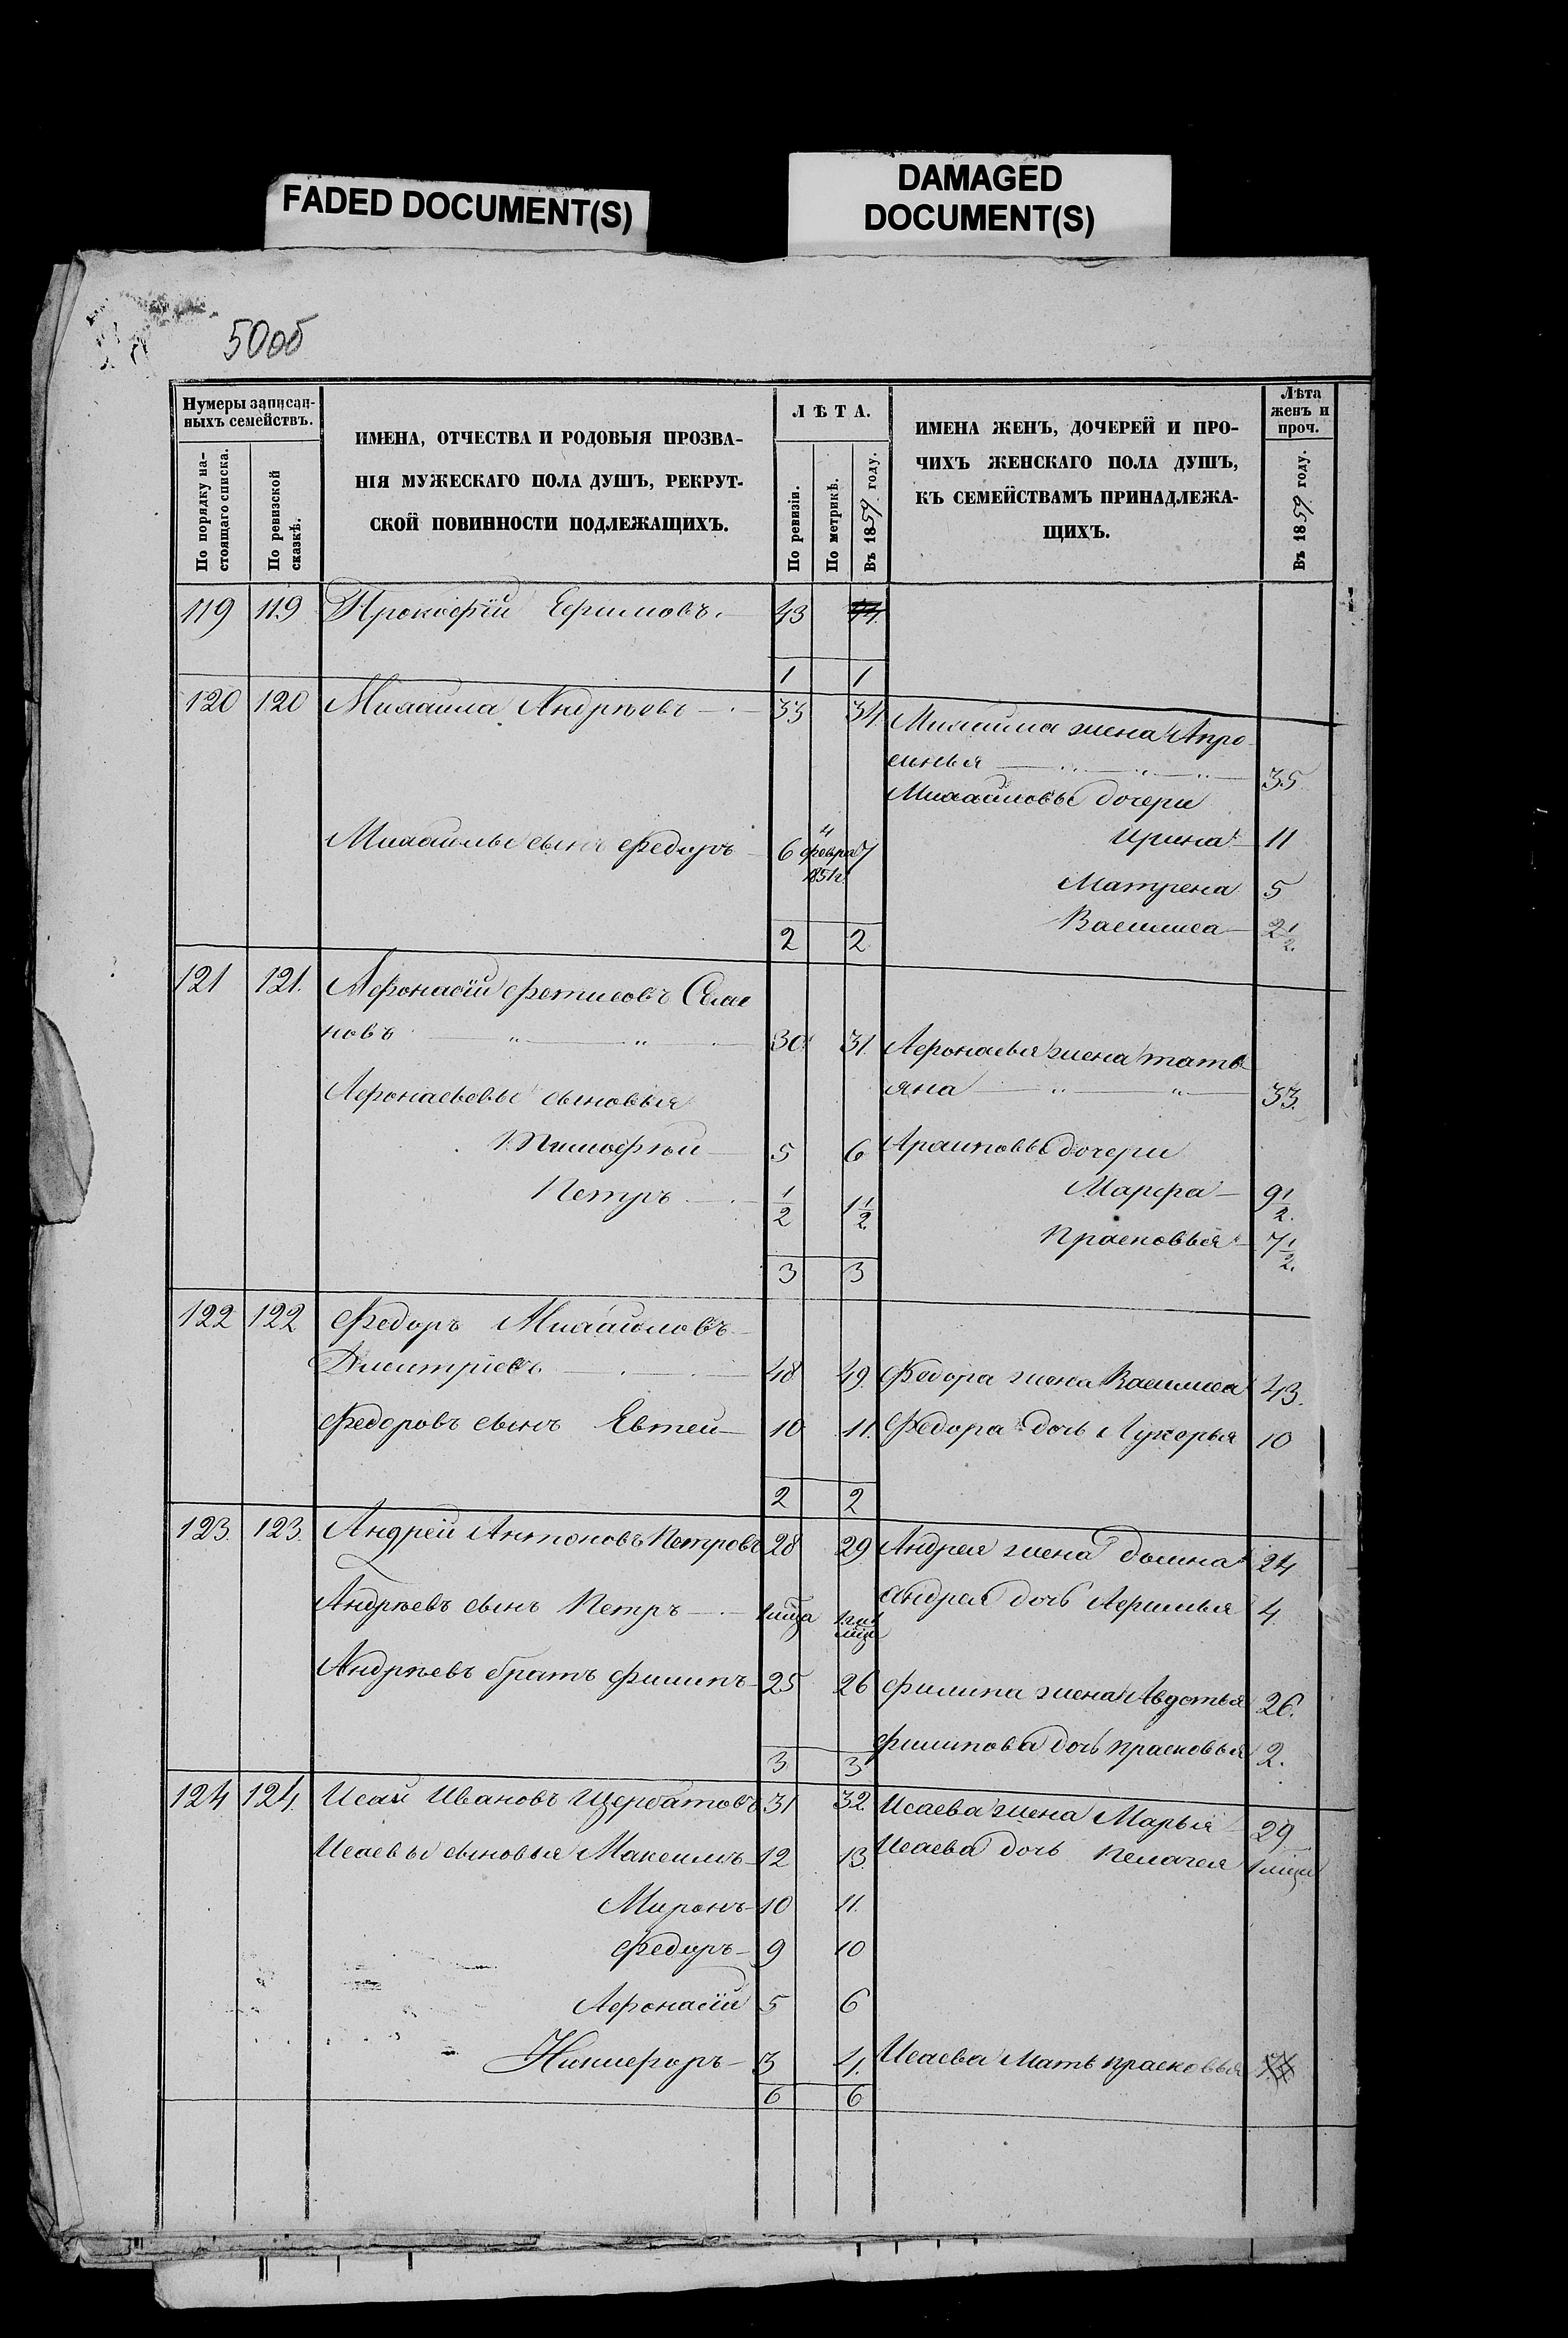 FADED DOCUMENT(S)
DAMAGED
DOCUMENT(S)
50об
Нумеры записан-
ныхъ семействъ.
По порядку на-
стоящаго списка.
По ревизской
сказкѣ.
ИМЕНА, ОТЧЕСТВА И РОДОВЫЯ ПРОЗВА-
НІЯ МУЖЕСКАГО ПОЛА ДУШЪ, РЕКРУТ-
СКОЙ ПОВИННОСТИ ПОДЛЕЖАЩИХЪ.
ЛѢТА.
По ревизіи.
По метрикѣ.
Въ 1859 году.
ИМЕНА ЖЕНЪ, ДОЧЕРЕЙ И ПРО-
ЧИХЪ ЖЕНСКАГО ПОЛА ДУШЪ,
КЪ СЕМЕЙСТВАМЪ ПРИНАДЛЕЖА-
ЩИХЪ.
Лѣта
женъ и
проч.
Въ 1859 году.
119 119 Прокофій Ефимовъ. 43
1 1
120 120 Михайла Андрѣевъ 33 34 Михайла жена Апро-
синья 35
Михайловы дочери
Михайлы сынъ Федоръ 6 4 февра 1851г. 7 Ирина 11
Матрена 5
Василиса 2 1/2.
2 2
121 121. Афонасій Фетисовъ
новъ 30 31. Афонасья жена Тать-
яна 33.
Афонасьевы сыновья
Тимофѣй 5 6 дочери
Петръ 1/2 1 1/2. Марфа 9 1/2.
Прасковья 7 1/2.
3 3
122 122 Федоръ Михайловъ
Дмитріевъ 48 49. Федора жена Василиса 43.
Федоровъ сынъ Евтей 10 11. Федора дочь Лукерья 10
2 2
123. 123. Андрей Антоновъ Петровъ 28 29 Андрея жена Домна 24
Андрѣевъ сынъ Петръ 1 мца Андрея дочь Афимья 4.
Андрѣевъ братъ Филипъ 25 26 Филипа жена Авдотья 26.
Филипова дочь Прасковья 2.
3 3
124 124. Исай Ивановъ Щербатовъ 31 32 Исаева жена Марья 29
Исаевы сыновья Максимъ 12 13. Исаева дочь Пелагея 1 мца
Миронъ 10 11.
Федоръ 9 10
Афонасій 5 6
Никифоръ 3 4. Исаева Мать Прасковья
6 6